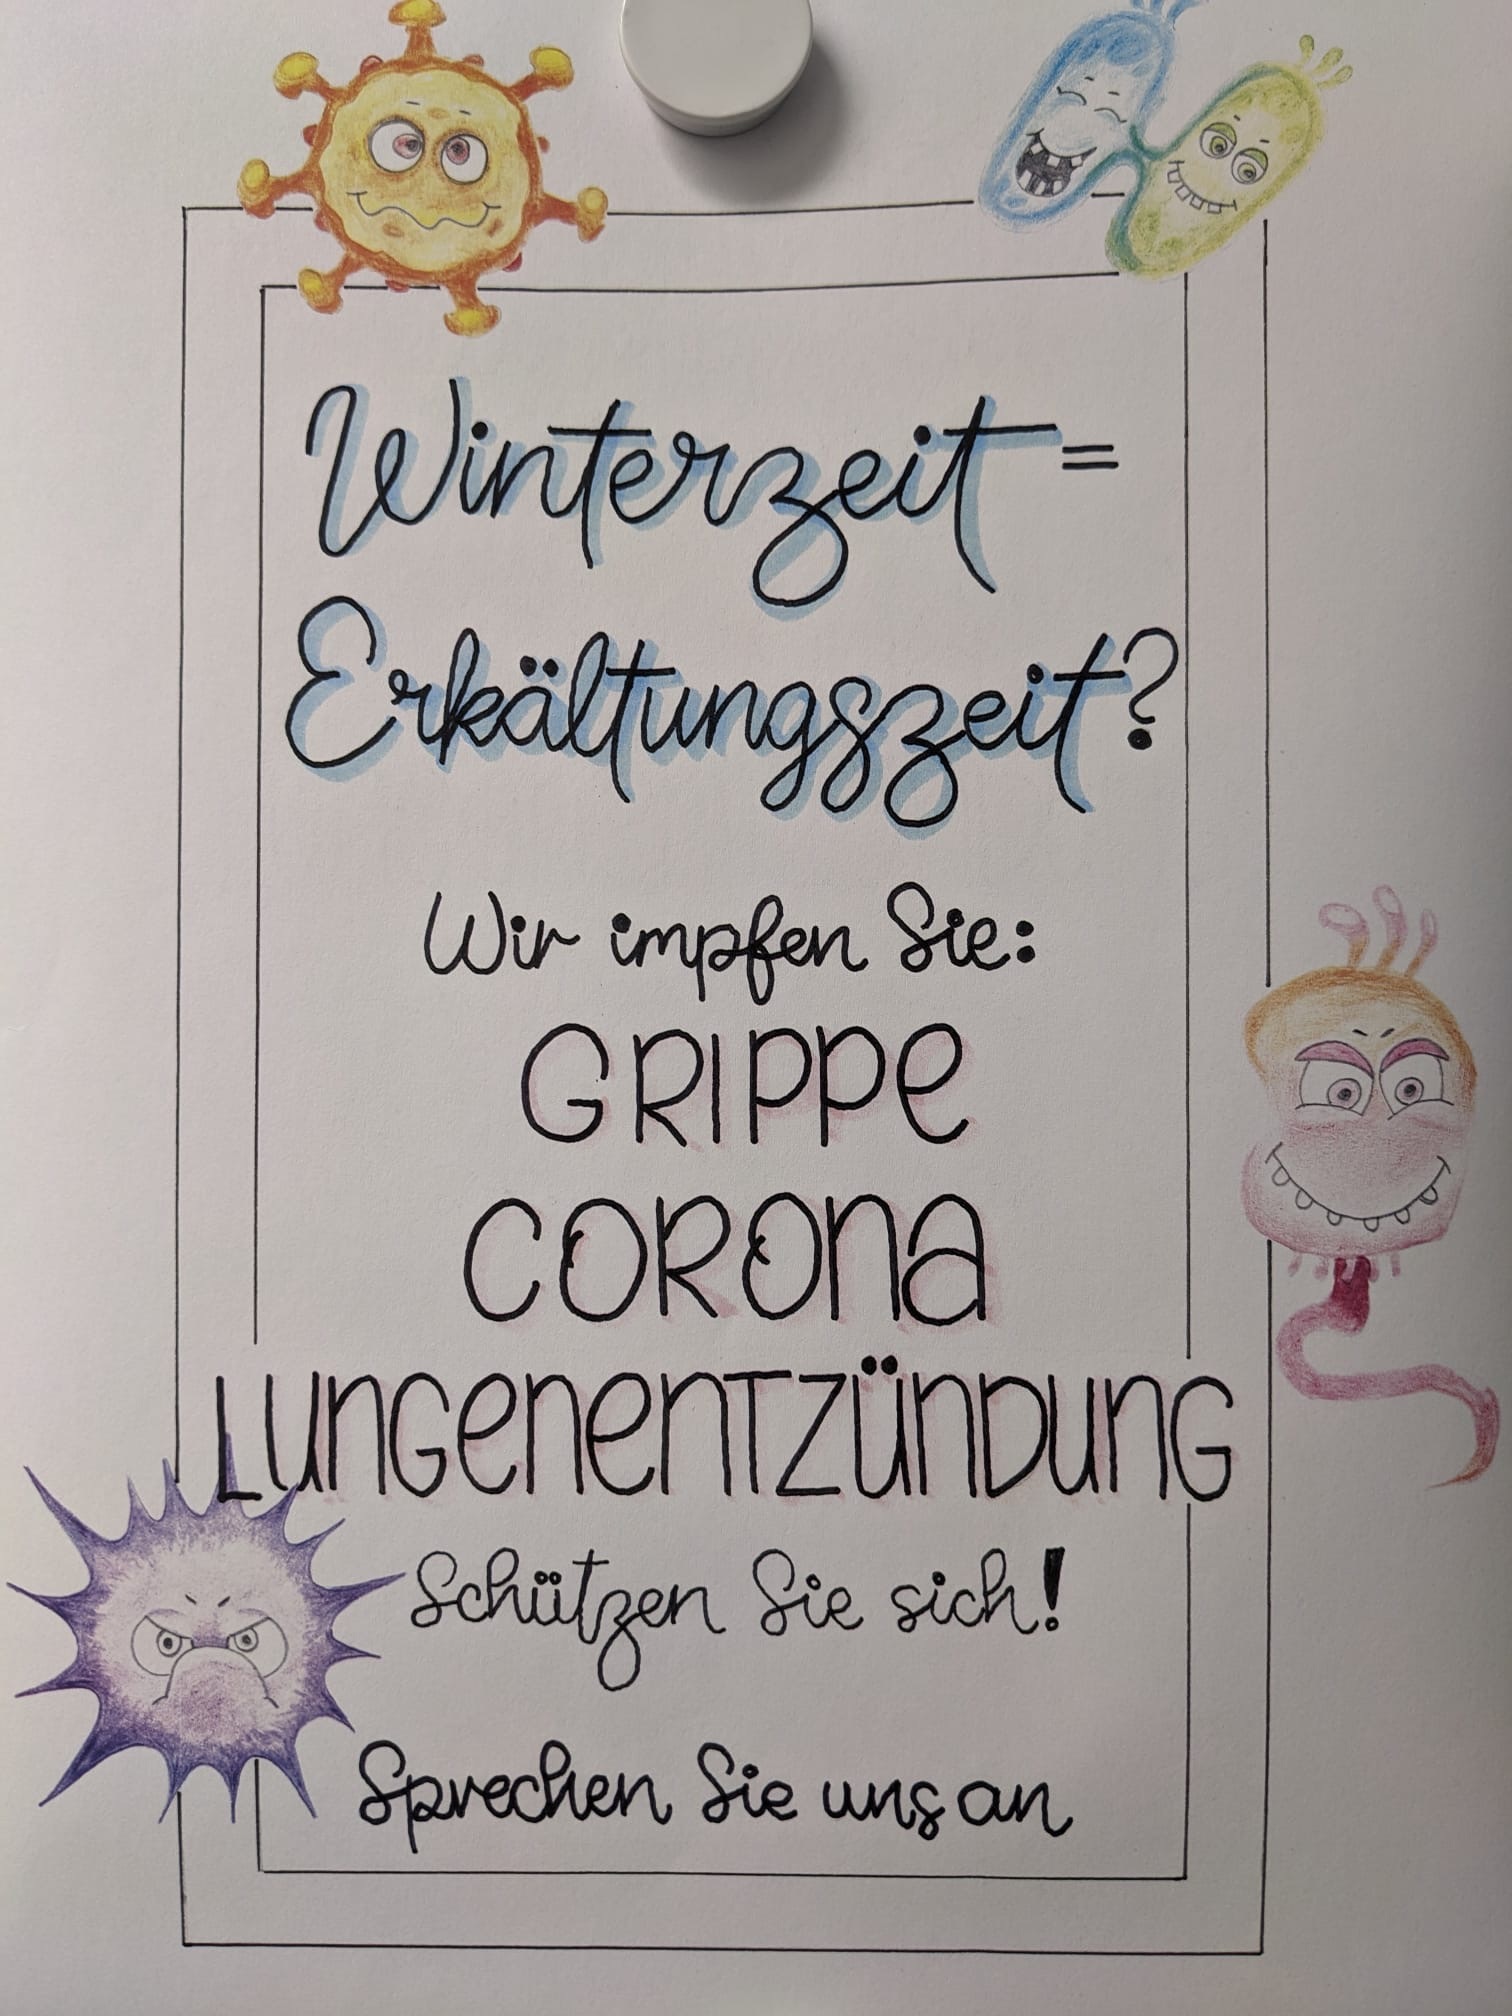 Winterzeit =
Erkältungszeit?
Wir impfen Sie:
GRIPPE
CORONA
LUNGENENTZÜNDUNG
Schützen Sie sich!
Sprechen Sie uns an